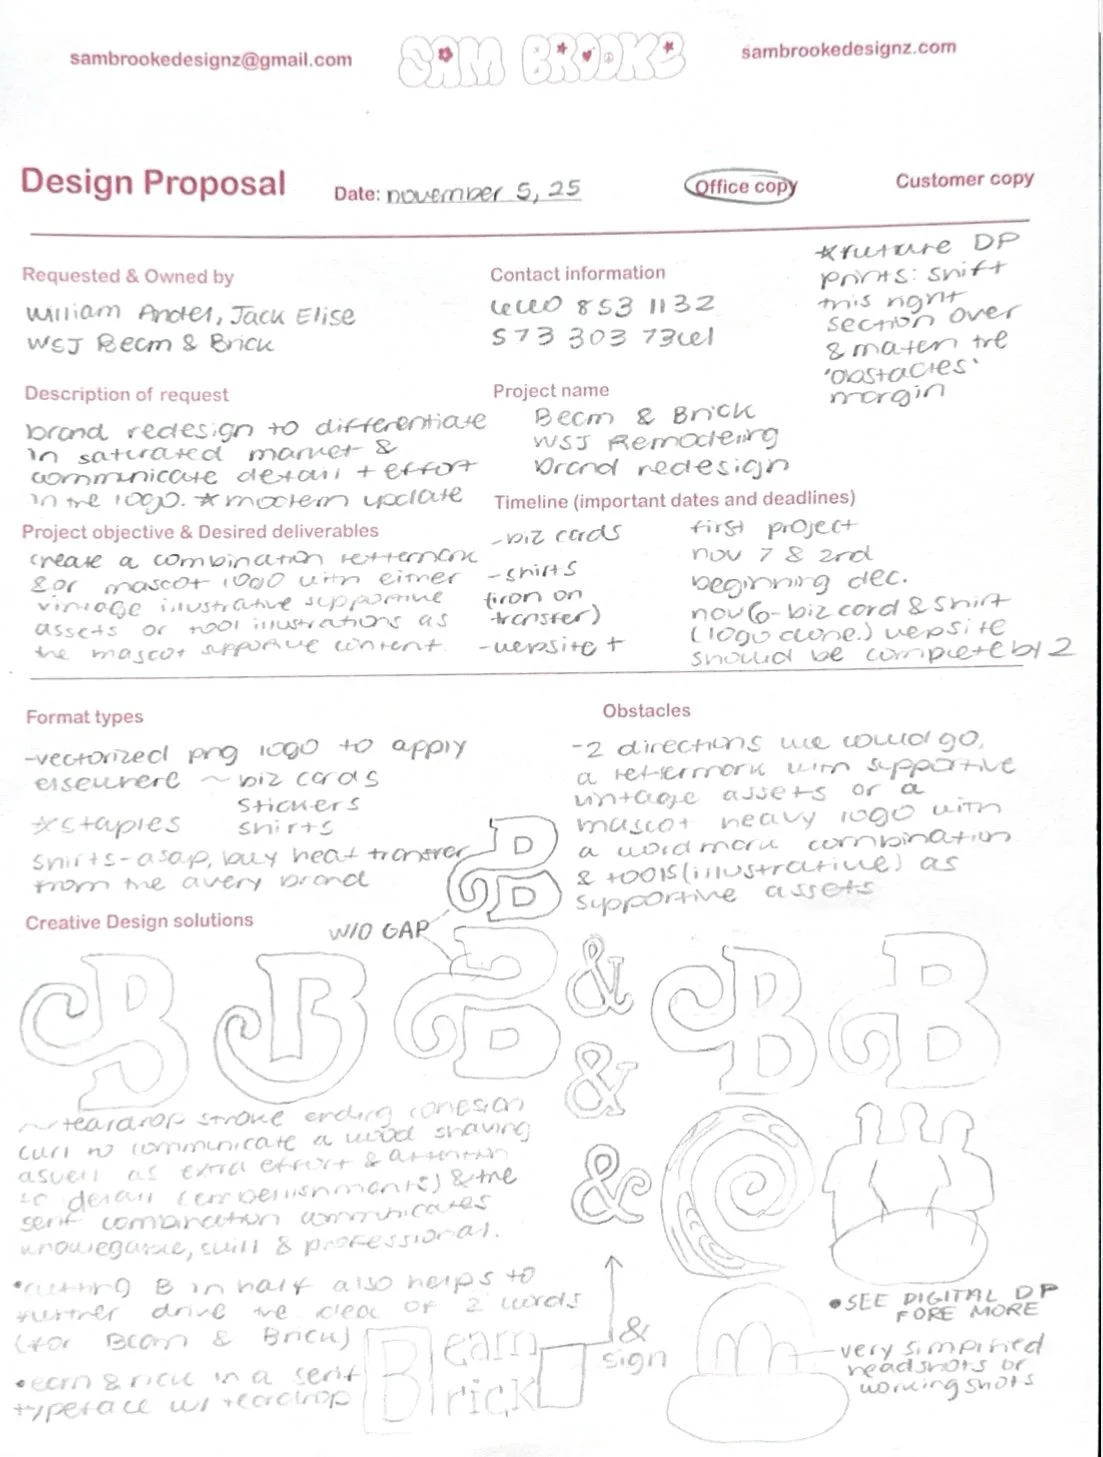 sambrookedesignz@gmail.com
SAM BROOKE
sambrookedesignz.com
Design Proposal
Date: november 5, 25
Office copy
Customer copy
*future DP
prints: shift
this right
section over
& match the
'obstacles'
margin
Requested & Owned by
William Andel, Jack Elise
WSJ Beam & Brick
Contact information
853 1132
573 303
Description of request
brand redesign to differentiate
in saturated market &
communicate detail + effort
in the logo. *modern update
Project name
Beam & Brick
WSJ Remodeling
brand redesign
Project objective & Desired deliverables
create a combination lettermark
&or mascot logo with either
vintage illustrative supportive
assets or tool illustrations as
the mascot supportive content.
Timeline (important dates and deadlines)
-biz cards
-shirts
(iron on
transfer)
-website +
first project
nov 7 & 2nd
beginning dec.
nov 6-biz card & shirt
(logo done.) website
should be complete by 2
Format types
-vectorized png logo to apply
elsewhere ~ biz cards
stickers
*staples shirts
shirts-asap, buy heat transfer
from the avery brand
Obstacles
-2 directions we could go,
a lettermark with supportive
vintage assets or a
mascot heavy logo with
a wordmark combination
& tools (illustrative) as
supportive assets
Creative Design solutions
W/O GAP
B
B B B & B B
&
&
~teardrop stroke ending cohesion
curl to communicate a wood shaving
aswell as extra effort & attention
to detail (embellishments) & the
serif combination communicates
knowlegable, skill & professional.
•cutting B in half also helps to
further drive the idea of 2 words
(for Beam & Brick)
•eam & rick in a serif
typeface w/ teardrop
Beam
Brick
&
sign
•SEE DIGITAL DP
FORE MORE
very simplified
headshots or
working shots